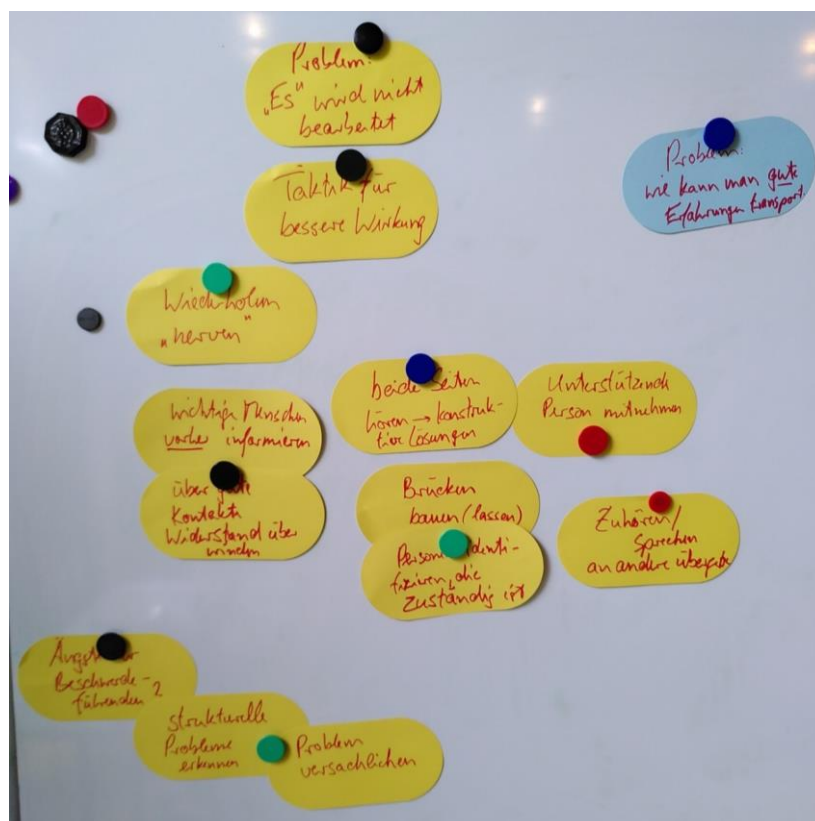 Problem:
„Es" wird nicht
bearbeitet
Taktik für
bessere Wirkung
Problem:
wie kann man gute
Erfahrungen transport.
Wiederholen
„nerven"
wichtige Menschen
vorher informieren
über gute
Kontakte
Widerstand über
winden
beide Seiten
hören → konstruk-
tive Lösungen
Unterstützende
Person mitnehmen
Brücken
bauen (lassen)
Person identi-
fizieren, die
zuständig ist
Zuhören/
sprechen
an andere übergeben
Ängste der
Beschwerde-
führenden ?
strukturelle
Probleme
erkennen
Problem
versachlichen